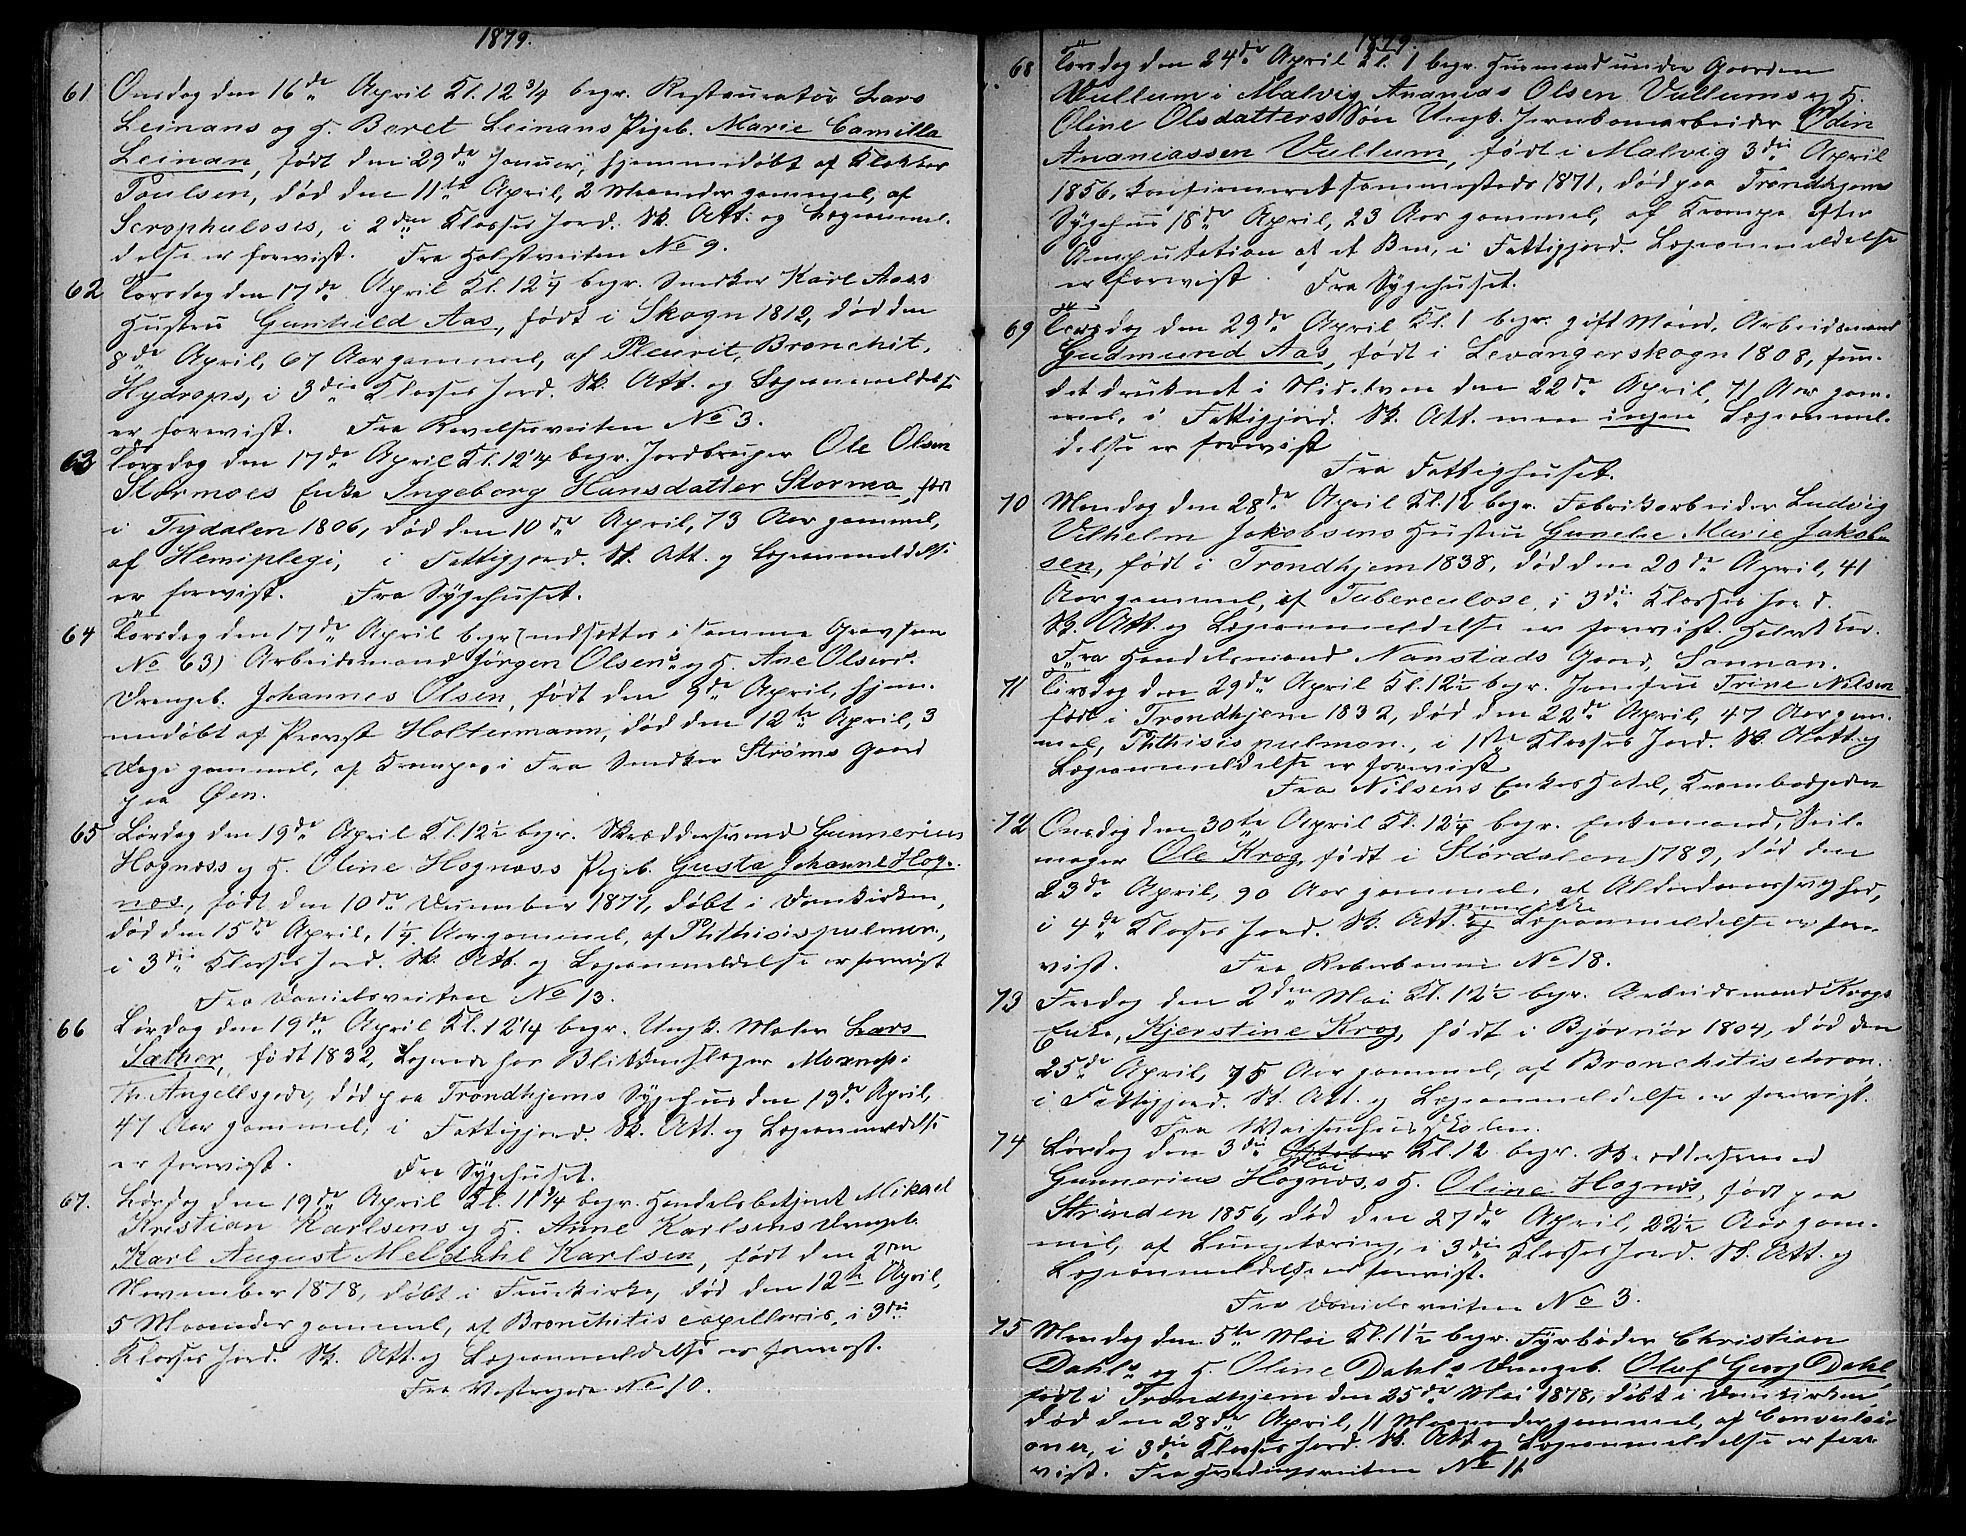 1879.
61 Onsdag den 16de April Kl. 12 3/4 begr. Restauratør Lars
Leinans og H. Beret Leinans Pigeb. Marie Camilla
Leinan, født den 29de Januar, hjemmedøbt af Klokker
Poulsen, død den 11te April, 2 Maaneder gammel, af
Scrophulosis, i 2den Klasses Jord. Sk. Att. og Lægeanmel-
delse er forevist. Fra Holstveiten No 9.
62 Torsdag den 17de April Kl. 12 1/4 begr. Snedker Karl Aas's
Hustru Gunhild Aas, født i Skogn 1812, død den
8de April, 67 Aar gammel, af Pleurit, Bronchit,
Hydrops, i 3die Klasses Jord. Sk. Att. og Lægeanmeldelse
er forevist. Fra Ravelsveiten No 3.
63 Torsdag den 17de April Kl. 12 1/4 begr. Jordbruger Ole Olsen
Stormoes Enke Ingeborg Hansdatter Stormo, født
i Tydalen 1806, død den 10de April, 73 Aar gammel,
af Hemiplegi, i Fattigjord. Sk. Att. og Lægeanmeldelse
er forevist. Fra Sygehuset.
64 Torsdag den 17de April begr. (nedsattes i samme Grav som
No 63) Arbeidsmand Jørgen Olsens og H. Ane Olsens
Drengeb. Johannes Olsen, født den 9de April, hjem-
medøbt af Provst Holtermann, død den 12te April, 3
Dage gammel, af Krampe, i Fra Snedker Strøms Gaard
paa Øen.
65 Lørdag den 19de April Kl. 12 1/2 begr. Skræddersvend Gunnerius
Hognæss og H. Oline Hognæss Pigeb. Gusta Johanne Hog-
næs, født den 10de December 1877, døbt i Domkirken,
død den 15de April, 1 1/4 Aar gammel, af Phthisis pulmon.,
i 3die Klasses Jord. Sk. Att. og Lægeanmeldelse er forevist
Fra Danielsveiten No 13.
66 Lørdag den 19de April Kl. 12 1/4 begr. Ungk. Maler Lars
Sæther, født 1832, Logerede hos Blikkenslager i
Th. Angellsgade, død paa Trondhjems Sygehus den 13de April,
47 Aar gammel, i Fattigjord. Sk. Att. og Lægeanmeldelse
er forevist. Fra Sygehuset.
67. Lørdag den 19de April Kl. 11 3/4 begr. Handelsbetjent Mikael
Kristian Karlsens og H. Anne Karlsens Drengeb.
Karl August Meldahl Karlsen, født den 2den
November 1878, døbt i Fruekirke, død den 12te April,
5 Maaneder gammel, af Bronchitis capillaris, i 3die
Klasses Jord. Sk. Att. og Lægeanmeldelse er forevist.
Fra Vestregade No 10.
1879.
68 Torsdag den 24de April Kl. 1 begr. Husmand under Gaarden
Vullum i Malvig Ananias Olsen Vullums og H.
Oline Olsdatters Søn Ungk. Jernbanearbeider Odin
Ananiassen Vullum, født i Malvig 3die April
1856, konfirmeret sammesteds 1871, død paa Trondhjems
Sygehus 18de April, 23 Aar gammel, af Krampe efter
Amputation af et Ben, i Fattigjord. Lægeanmeldelse
er forevist Fra Sygehuset.
69 Tirsdag den 29de April Kl. 1 begr. gift Mand, Arbeidsmand
Gudmund Aas, født i Levangerskogn 1808, fun-
det druknet i Nidelven den 22de April, 71 Aar gam-
mel, i Fattigjord. Sk. Att. men ingen Lægeanmel-
delse er forevist
Fra Fattighuset.
70 Mandag den 28de April Kl. 12 begr. Fabrikarbeider Ludvig
Vilhelm Jakobsens Hustru Gunelie Marie Jakob-
sen, født i Trondhjem 1838, død den 20de April, 41
Aar gammel, af Tuberculose, i 3die Klasses Jord.
Sk. Att. og Lægeanmeldelse er forevist.
Fra Handelsmand Nanstads Gaard, Sannan.
71 Tirsdag den 29de April Kl. 12 1/2 begr. Jomfru Trine Nilsen
født i Trondhjem 1832, død den 22de April, 47 Aar gam-
mel, Phthisis pulmon., i 1ste Klasses Jord. Sk. Att. og
Lægeanmeldelse er forevist
Fra Nilsens Enkes Hotel, Krambodgaden
72 Onsdag den 30te April Kl. 12 1/4 begr. Enkemand, Seil-
mager Ole Krog, født i Størdalen 1789, død den
23de April, 90 Aar gammel, af Alderdomssvaghed,
i 4de Klasses Jord. Sk. Att. og men ikke Lægeanmeldelse er fore-
vist. Fra Reberbanen No 18.
73 Fredag den 2den Mai Kl. 12 1/2 begr. Arbeidsmand Krogs
Enke, Kjerstine Krog, født i Bjørnør 1804, død den
25de April, 75 Aar gammel, af Bronchitis chron.
i Fattigjord. Sk. Att. og Lægeanmeldelse er forevist.
Fra Waisenhusskolen.
74 Lørdag den 3die Oktober Mai Kl. 12 begr. Skræddersvend
Gunnerius Hognæs's H. Oline Hognæs, født paa
Strinden 1856, død den 27de April, 22 1/2 Aar gam-
mel, af Lungetæring, i 3die Klasses Jord. Sk. Att. og
Lægeanmeldelse er forevist.
Fra Danielsveiten No 3.
75 Mandag den 5te Mai Kl. 11 1/2 begr. Fyrbøder Christian
Dahls og H. Oline Dahls Drengeb. Oluf Georg Dahl,
født i Trondhjem den 25de Mai 1878, døbt i Domkirken,
død den 28de April, 11 Maaneder gammel, af Convulsi-
oner, i 3die Klasses Jord. Sk. Att. og Lægeanmeldelse er fore-
vist. Fra Hvedingsveiten No 11